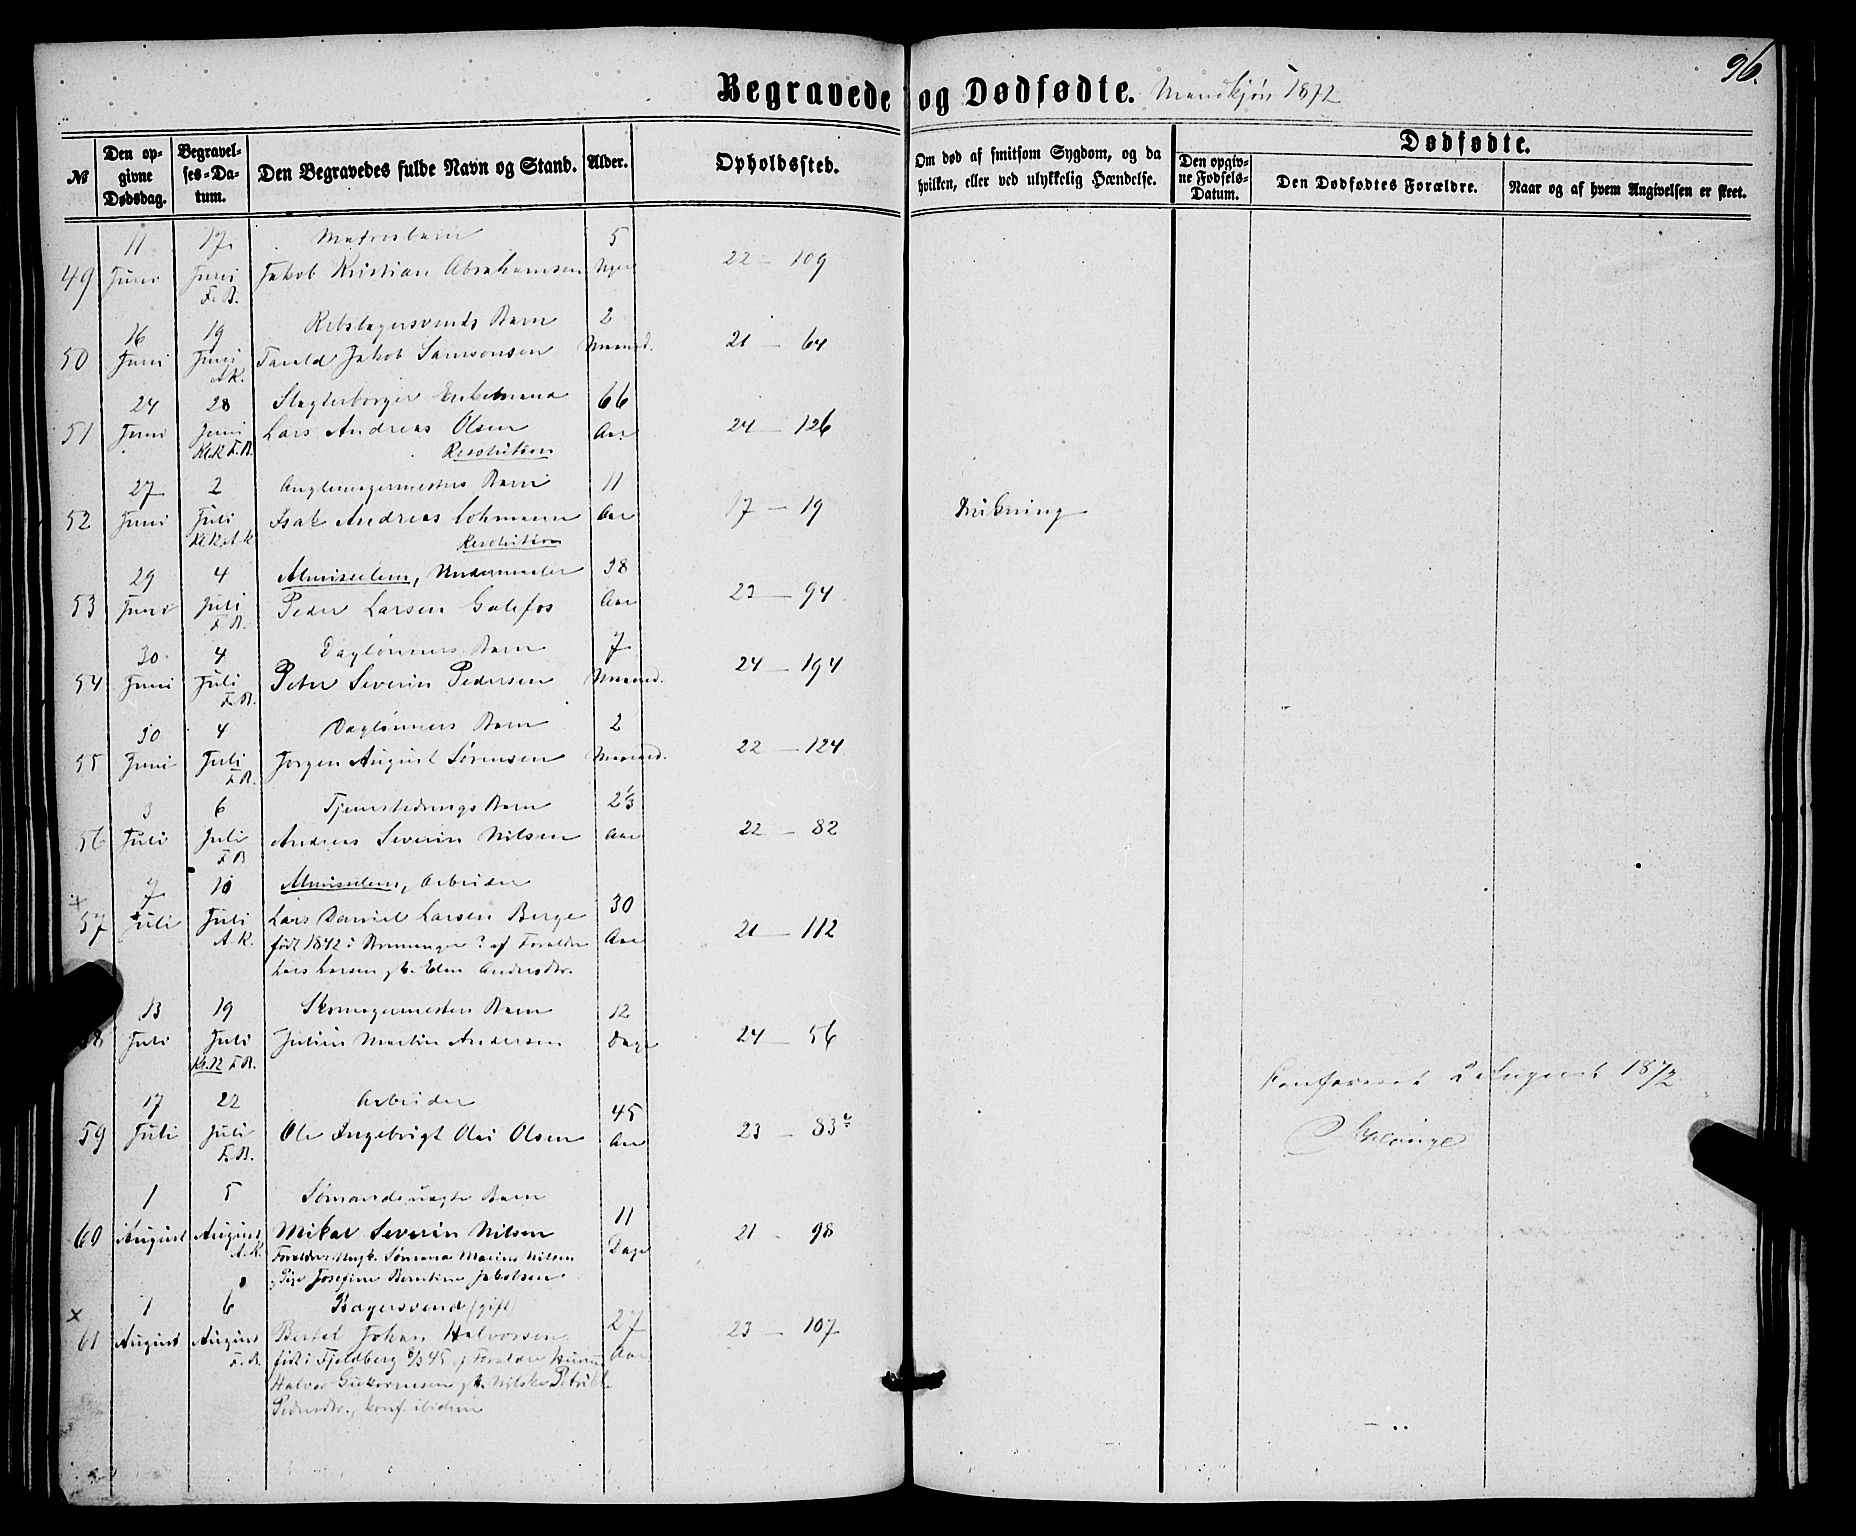 96.
Begravede og Dødfødte. Mandkjøn 1872
№
Den opgivne Dødsdag.
Begravelses-Datum.
Den Begravedes fulde Navn og Stand.
Alder.
Opholdssted.
Om død af smitsom Sygdom, og da hvilken, eller ved ulykkelig Hændelse.
Dødfødte.
Den opgivne Fødsels-Datum.
Den Dødfødtes Forældre.
Naar og af hvem Angivelsen er skeet.
11 17 Matrosbarn 5
49 Juni Juni Jakob Kristian Abrahamsen Uger 22 — 109
F.B.
16 19 Rebslagersvends Barn 2
50 Juni Juni Tarald Jakob Samsonsen Maaned. 21 — 64
A.K.
24 28 Slagterborger Enkemand 66
51 Juni Juni Lars Andreas Olsen Aar 24 — 126
Kl.R F.B. Resolution
27 2 Barn 11
52 Juni Juli Isak Andreas Lohmann Aar 17 — 19 Drukning
Resolution
29 4 Almisselem, 38
53 Juni Juli Peder Larsen Aar 23 — 94
F.B.
30 4 Daglønners Barn 7
54 Juni Juli Peter Severin Pedersen Maaned. 24 — 194
F.B.
30 4 Daglønners Barn 2
55 Juni Juli Jørgen August Sørensen Maaned. 22 — 124
F.B.
3 6 Barn 2⅓
56 Juli Juli Andreas Severin Nilsen Aar 22 — 82
F.B
7 10 Almisselem, Arbeider
× 57 Juli Juli Lars Daniel Larsen Berge 30 21 — 112
A.K. født 1842 i ? af Forældre Aar
Lars Larsen og Andersdtr.
13 19 Skomagermesters Barn 12
58 Juli Juli Julius Martin Andersen Dage 24 — 56
Kl.R F.B.
17 22 Arbeider 45
59 Juli Juli Ole Ingebrigt Olai Olsen Aar 23 — 83
F.B.
Konfereret 2 August 1872
1 5 Sømands uægte Barn 11
60 August August Mikal Severin Nilsen Dage 21 - 98
A.K. Forældre Sømand Marius Nilsen
Pige Josefine Berntine Jakobsen
1 6 Bagersvend (gift) 27
× 61 August August Bertel Johan Halvorsen Aar 23 — 107
F.B. født i Fjeldberg 8/3 45 af Forældre
Halvor
Pedersdtr., konf ibidem